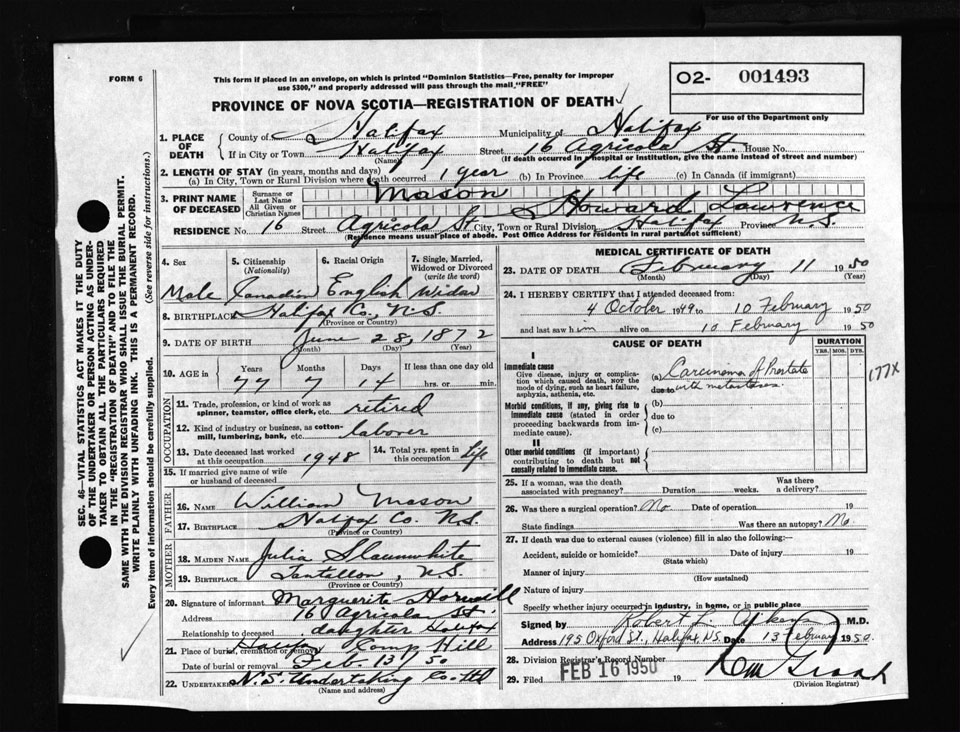 FORM 6
This form if placed in an envelope, on which is printed "Dominion Statistics—Free, penalty for improper
use $300," and properly addressed will pass through the mail "FREE"
O2- 001493
For use of the Department only
PROVINCE OF NOVA SCOTIA—REGISTRATION OF DEATH
1. PLACE OF DEATH
County of Halifax Municipality of Halifax
If in City or Town Halifax Street 16 Agricola St. House No.
(Name) (If death occurred in a hospital or institution, give the name instead of street and number)
2. LENGTH OF STAY (in years, months and days)
(a) In City, Town or Rural Division where death occurred 1 year (b) In Province life (c) In Canada (if immigrant)
3. PRINT NAME OF DECEASED
Surname or Last Name Mason
All Given or Christian Names Howard Lawrence
RESIDENCE No. 16 Street Agricola St City, Town or Rural Division Halifax Province N.S.
(Residence means usual place of abode. Post Office Address for residents in rural parts not sufficient)
4. Sex 5. Citizenship (Nationality) 6. Racial Origin 7. Single, Married, Widowed or Divorced (write the word)
Male Canadian English Widow
8. BIRTHPLACE Halifax Co., N.S.
(Province or Country)
9. DATE OF BIRTH June 28, 1872
(Month) (Day) (Year)
10. AGE in Years Months Days If less than one day old
77 7 14 hrs. or min.
OCCUPATION
11. Trade, profession, or kind of work as spinner, teamster, office clerk, etc. retired
12. Kind of industry or business, as cotton-mill, lumbering, bank, etc. laborer
13. Date deceased last worked at this occupation 1948 14. Total yrs. spent in this occupation Life
15. If married give name of wife or husband of deceased
FATHER
16. NAME William Mason
17. BIRTHPLACE Halifax Co. N.S.
(Province or Country)
MOTHER
18. MAIDEN NAME Julia Slaunwhite
19. BIRTHPLACE Tantellon, N.S.
(Province or Country)
20. Signature of informant Marguerite
Address 16 Agricola St.
Relationship to deceased daughter Halifax
21. Place of burial, cremation or removal Camp Hill
Date of burial or removal Feb. 13/50
22. UNDERTAKER N.S. Undertaking Co. Ltd
(Name and address)
MEDICAL CERTIFICATE OF DEATH
23. DATE OF DEATH February 11 1950
(Month) (Day) (Year)
24. I HEREBY CERTIFY that I attended deceased from:
4 October 1949 to 10 February 1950
and last saw him alive on 10 February 1950
CAUSE OF DEATH DURATION
YRS. MOS. DYS.
I
Immediate cause
Give disease, injury or complication which caused death, NOT the mode of dying, such as heart failure, asphyxia, asthenia, etc.
(a) Carcinoma of Prostate
due to with metastases
177X
Morbid conditions, if any, giving rise to immediate cause (stated in order proceeding backwards from immediate cause).
(b)
due to
(c)
II
Other morbid conditions (if important) contributing to death but not causally related to immediate cause.
25. If a woman, was the death associated with pregnancy? Duration weeks. Was there a delivery?
26. Was there a surgical operation? No Date of operation 19
State findings Was there an autopsy? No
27. If death was due to external causes (violence) fill in also the following:—
Accident, suicide or homicide? Date of injury 19
(State which)
Manner of injury
(How sustained)
Nature of injury
Specify whether injury occurred in industry, in home, or in public place
Signed by Robert L. M.D.
Address 195 Oxford St., Halifax, N.S. Date 13 February 1950.
28. Division Registrar's Record Number
29. Filed FEB 16 1950 19
(Division Registrar)
SEC. 46—VITAL STATISTICS ACT MAKES IT THE DUTY
OF THE UNDERTAKER OR PERSON ACTING AS UNDER-
TAKER TO OBTAIN ALL THE PARTICULARS REQUIRED
IN THE "REGISTRATION OF DEATH" AND TO FILE THE
SAME WITH THE DIVISION REGISTRAR WHO SHALL ISSUE THE BURIAL PERMIT.
WRITE PLAINLY WITH UNFADING INK. THIS IS A PERMANENT RECORD.
Every item of information should be carefully supplied. (See reverse side for instructions.)